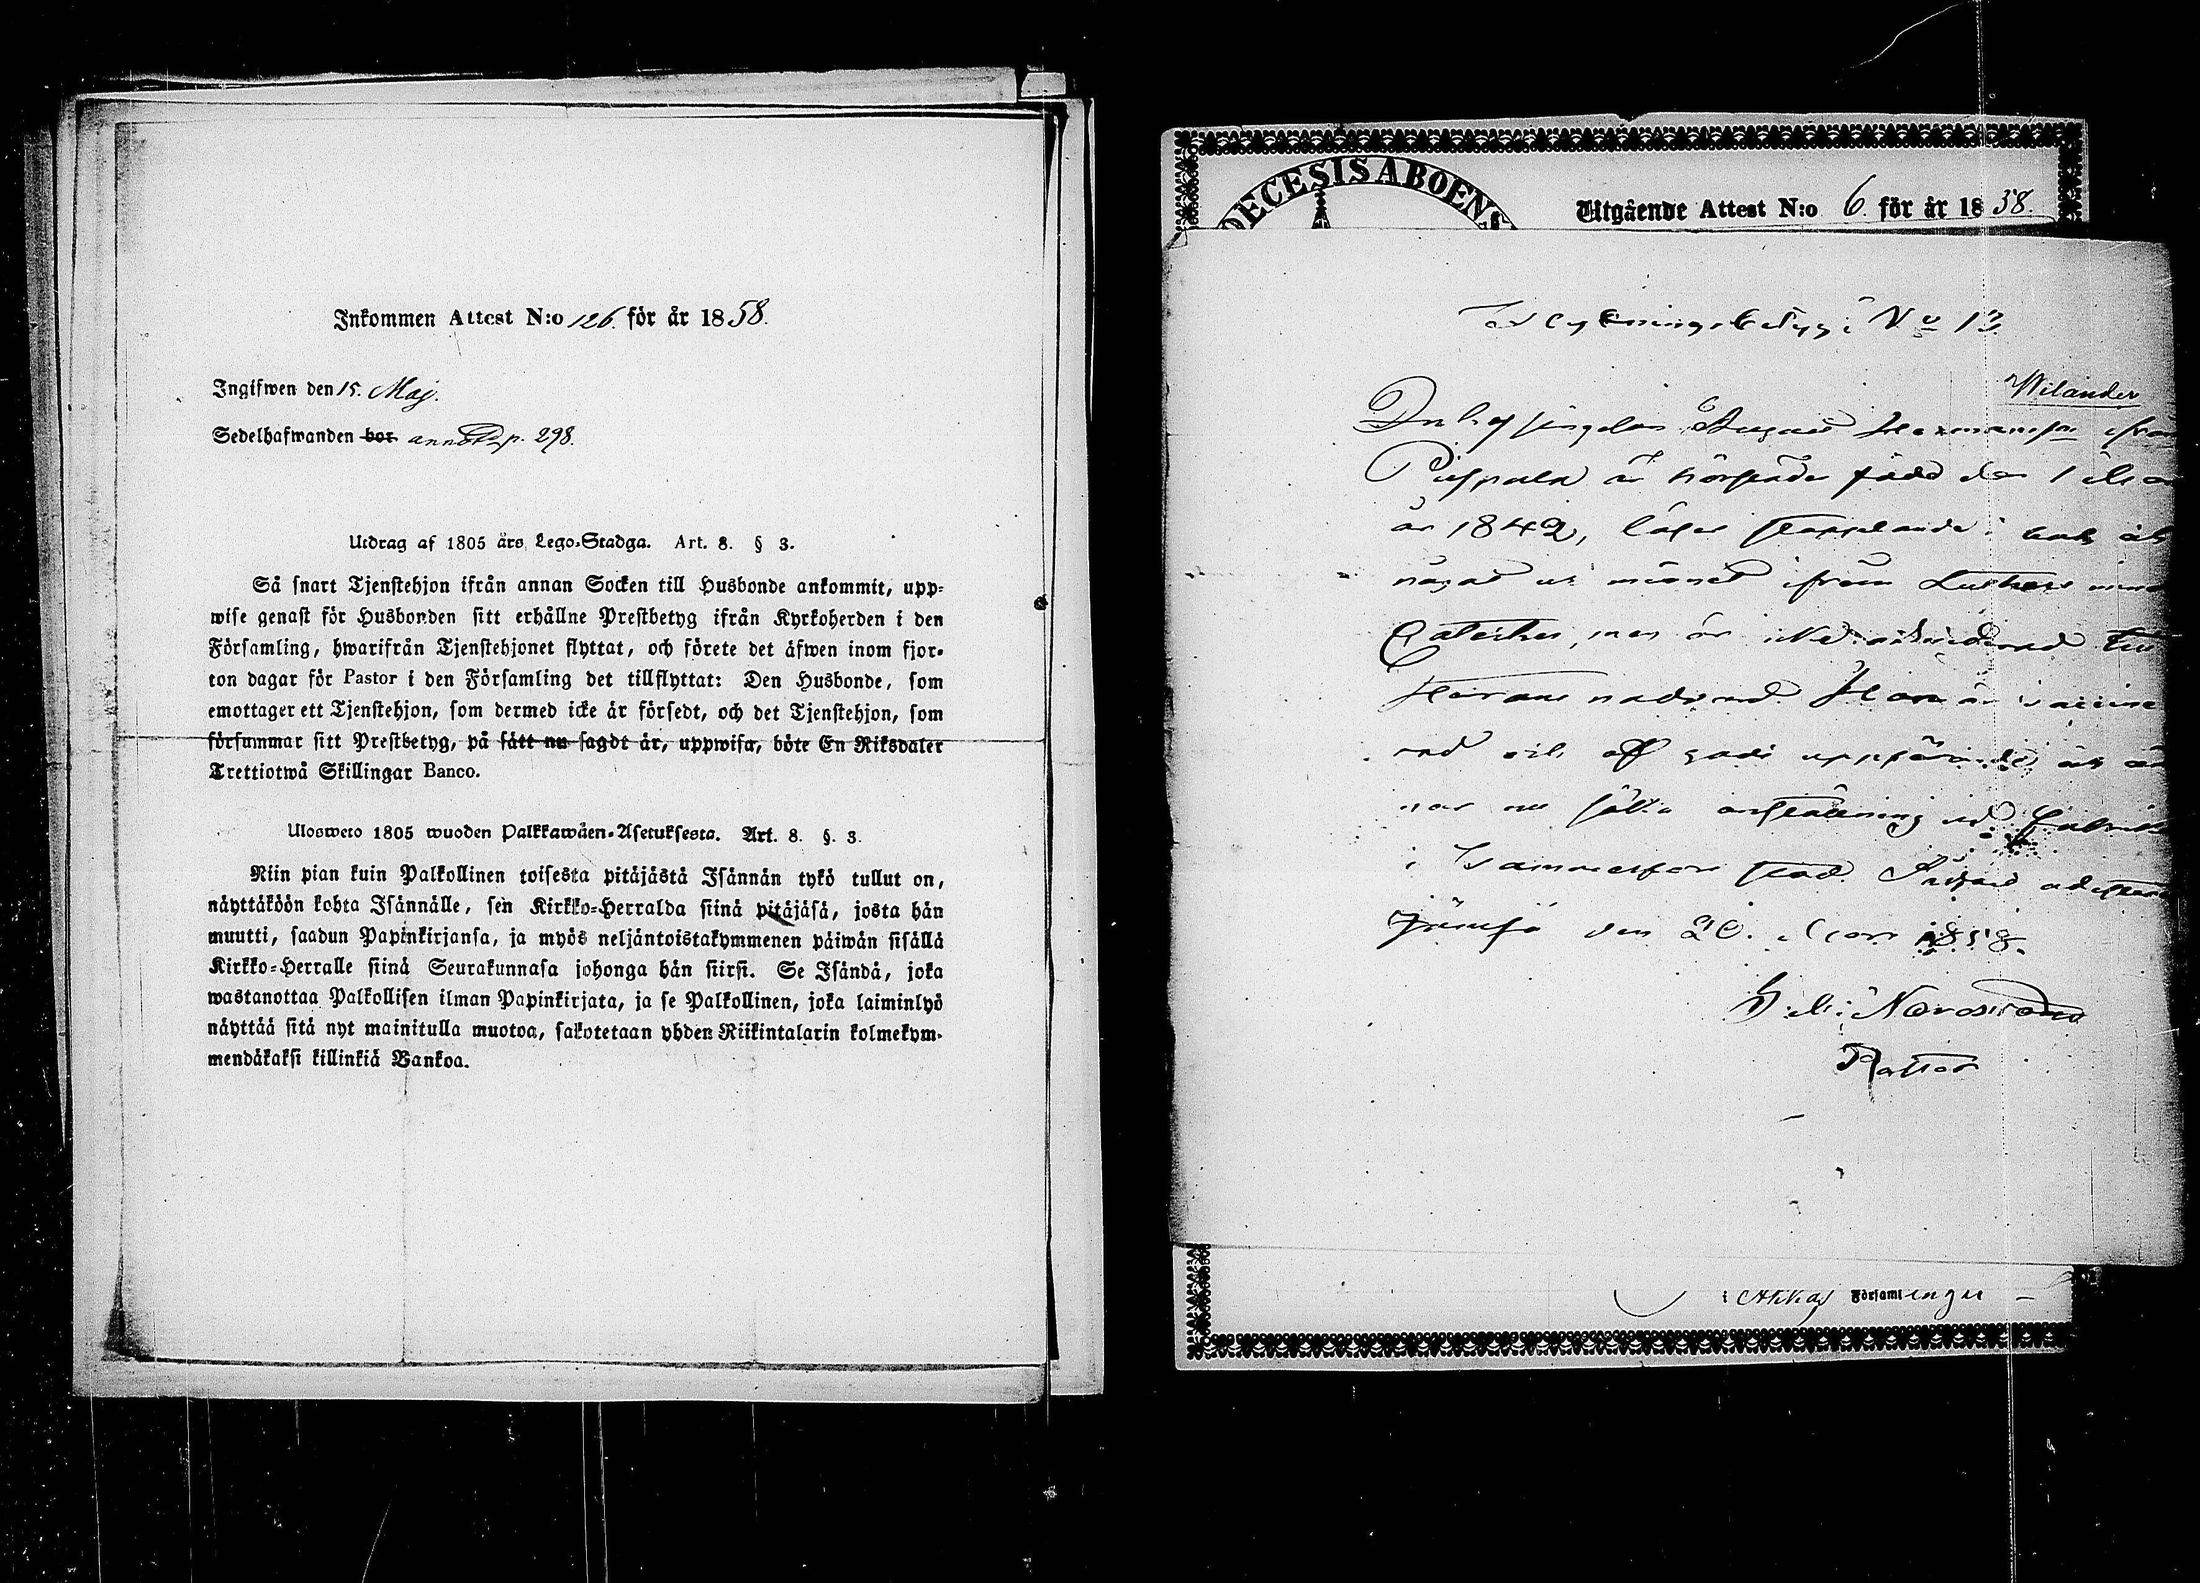 Inkommen Attest N:o 126. för år 1858.
Ingifwen den 15. Maj.
Sedelhafwanden bor annot. p. 298.
Utdrag af 1805 års Lego-Stadga. Art. 8. § 3.
Så snart Tjenstehjon ifrån annan Socken till Husbonde ankommit, upp-
wise genast för Husbonden sitt erhållne Prestbetyg ifrån Kyrkoherden i den
Församling, hwarifrån Tjenstehjonet flyttat, och förete det äfwen inom fjor-
ton dagar för Pastor i den Församling det tillflyttat: Den Husbonde, som
emottager ett Tjenstehjon, som dermed icke är försedt, och det Tjenstehjon, som
försummar sitt Prestbetyg, på sätt nu sagdt är, uppwisa, böte En Riksdaler
Trettiotwå Skillingar Banco.
Ulosweto 1805 wuoden Palkkawäen-Asetuksesta. Art. 8. §. 3.
Niin pian kuin Palkollinen toisesta pitäjästä Isännän tykö tullut on,
näyttäköön kohta Isännälle, sen Kirkko-Herralda siinä pitäjäsä, josta hän
muutti, saadun Papinkirjansa, ja myös neljäntoistakymmenen päiwän sisällä
Kirkko-Herralle siinä Seurakunnasa johonga hän siirsi. Se Isändä, joka
wastanottaa Palkollisen ilman Papinkirjata, ja se Palkollinen, joka laiminlyö
näyttää sitä nyt mainitulla muotoa, sakotetaan yhden Riikintalarin kolmekym-
mendäkaksi killinkiä Bankoa.
DECESIS ABOENS
Utgående Attest N:o 6. för år 1858.
No 13
Wilander
Ynglingen August Hermansson ifrån
är härstädes född den 1
år 1842, läser stapplande i bok
något ur minnet ifrån Luthers
Cateches, men är
Han är
god
nu söka anställning vid
i Tammerfors stad.
Jämsä den 20. Mars 1858.
Nordstrand
Pastor
i Akkas Församlingar